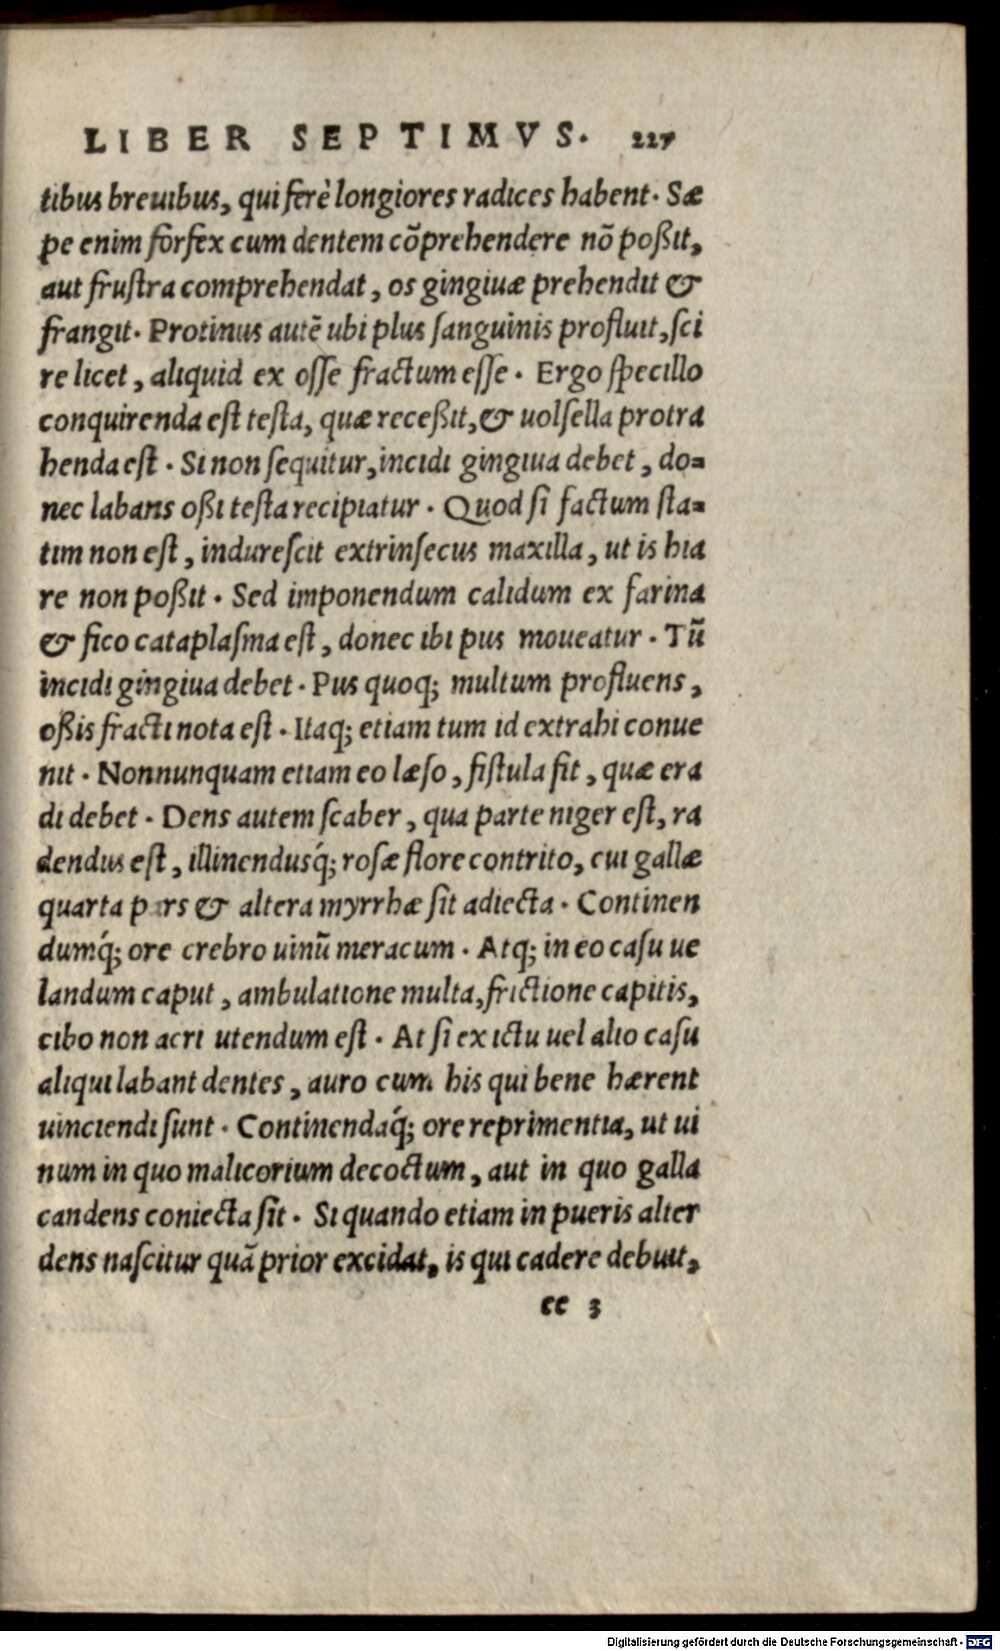 LIBER SEPTIMVS. 227
tibus breuibus, qui ferè longiores radices habent. Sæ
pe enim forfex cum dentem cõprehendere nõ poßit,
aut frustra comprehendat, os gingiuæ prehendit &
frangit. Protinus autẽ ubi plus sanguinis profluit, sci
re licet, aliquid ex osse fractum esse. Ergo specillo
conquirenda est testa, quæ receßit, & uolsella protra
henda est. Si non sequitur, incidi gingiua debet, do=
nec labans oßi testa recipiatur. Quod si factum sta=
tim non est, indurescit extrinsecus maxilla, ut is hia
re non poßit. Sed imponendum calidum ex farina
& fico cataplasma est, donec ibi pus moueatur. Tũ
incidi gingiua debet. Pus quoq; multum profluens,
oßis fracti nota est. Itaq; etiam tum id extrahi conue
nit. Nonnunquam etiam eo læso, fistula fit, quæ era
di debet. Dens autem scaber, qua parte niger est, ra
dendus est, illinendusq́; rosæ flore contrito, cui gallæ
quarta pars & altera myrrhæ sit adiecta. Continen
dumq́; ore crebro uinũ meracum. Atq; in eo casu ue
landum caput, ambulatione multa, frictione capitis,
cibo non acri utendum est. At si ex ictu uel alio casu
aliqui labant dentes, auro cum his qui bene hærent
uinciendi sunt. Continendaq́; ore reprimentia, ut ui
num in quo malicorium decoctum, aut in quo galla
candens coniecta sit. Si quando etiam in pueris alter
dens nascitur quã prior excidat, is qui cadere debuit,
cc 3
Digitalisierung gefördert durch die Deutsche Forschungsgemeinschaft - DFG